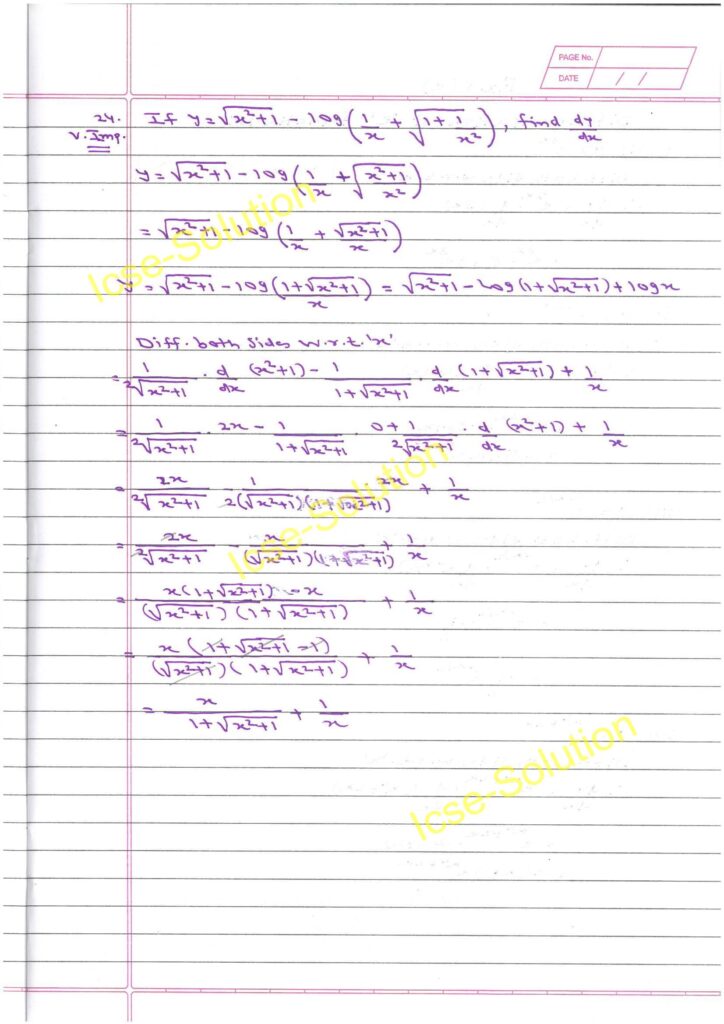 PAGE No.
DATE / /
24. If y = √(x²+1) - log(1/x + √(1+1/x²)), find dy/dx
V. Imp.
y = √(x²+1) - log(1/x + √((x²+1)/x²))
= √(x²+1) - log(1/x + √(x²+1)/x)
y = √(x²+1) - log(1+√(x²+1))/x = √(x²+1) - log(1+√(x²+1)) + logx
Diff. both sides w.r.t. 'x'
= 1/(2√(x²+1)) . d/dx (x²+1) - 1/(1+√(x²+1)) . d/dx (1+√(x²+1)) + 1/x
= 1/(2√(x²+1)) . 2x - 1/(1+√(x²+1)) . 0+1/(2√(x²+1)) . d/dx (x²+1) + 1/x
= 2x/(2√(x²+1)) - 1/(2(√(x²+1))(1+√(x²+1))) . 2x + 1/x
= 2x/(2√(x²+1)) - x/((√(x²+1))(1+√(x²+1))) + 1/x
= (x(1+√(x²+1)) - x)/((√(x²+1))(1+√(x²+1))) + 1/x
= x(1+√(x²+1) - 1)/((√(x²+1))(1+√(x²+1))) + 1/x
= x/(1+√(x²+1)) + 1/x
Icse-Solution
Icse-Solution
Icse-Solution